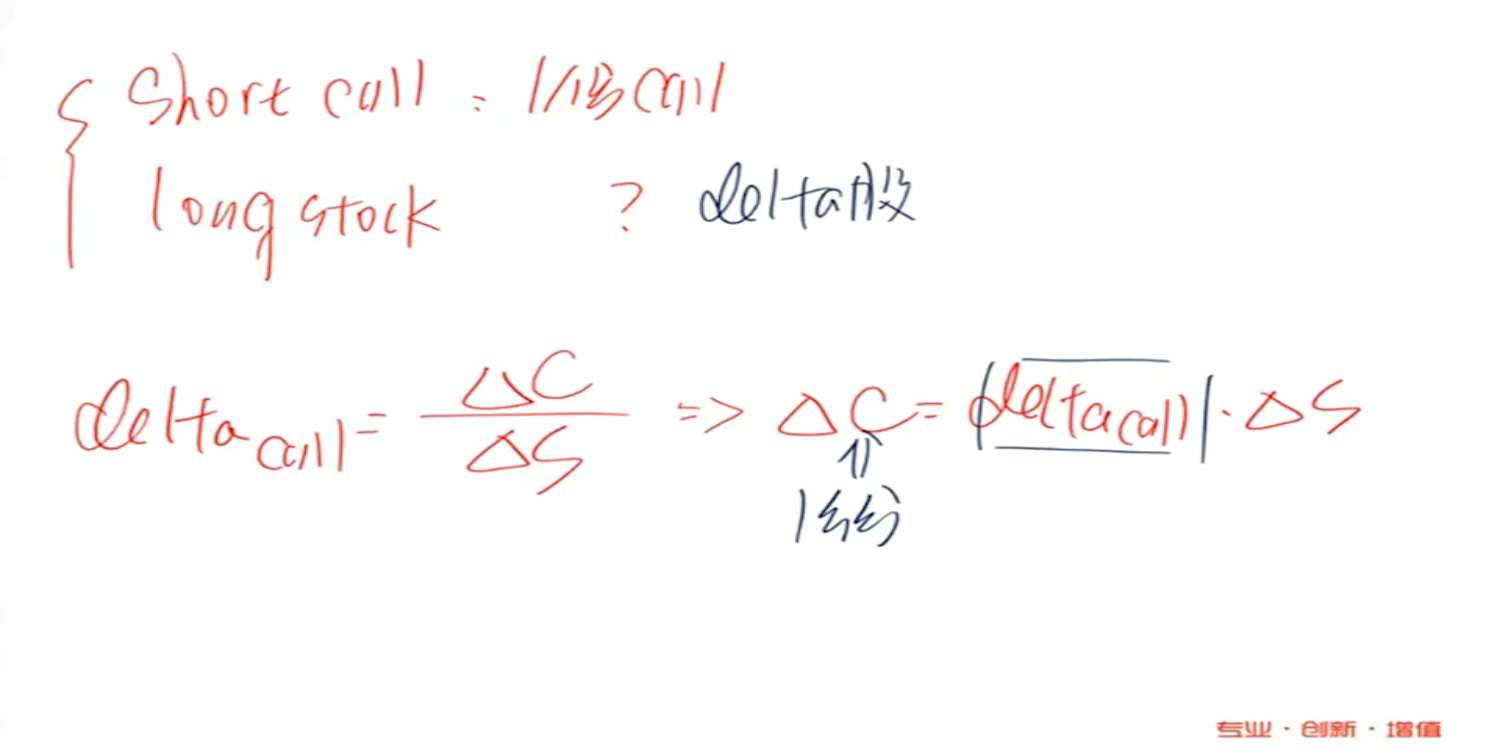 Short call : 1份call
long stock ? delta股
delta call = ΔC / ΔS => ΔC = delta call · ΔS
⇑
1份
专业 · 创新 · 增值